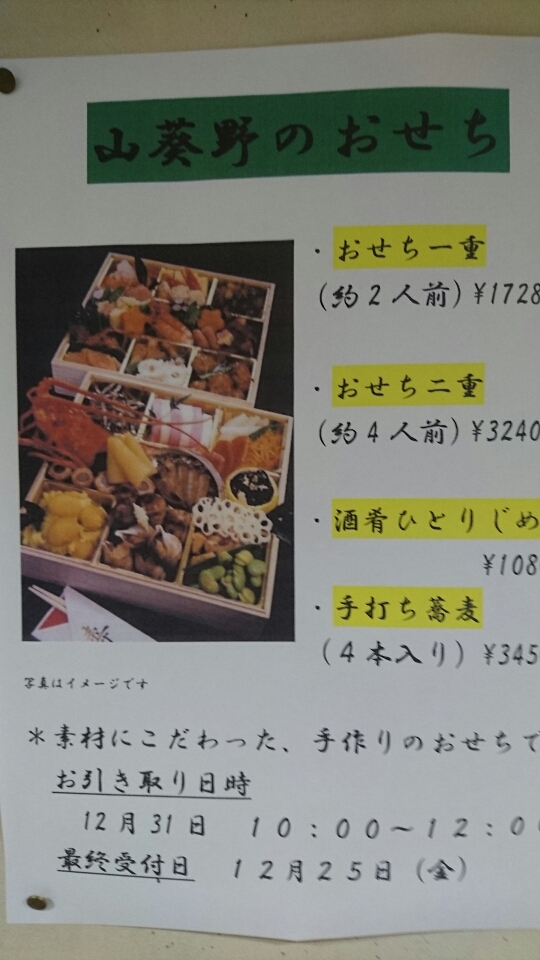 山葵野のおせち
・おせち一重
(約2人前)¥1728
・おせち二重
(約4人前)¥3240
・酒肴ひとりじめ
¥108
・手打ち蕎麦
(4本入り) ¥345
写真はイメージです
寿
*素材にこだわった、手作りのおせちで
お引き取り日時
12月31日 10:00~12:0
最終受付日 12月25日(金)